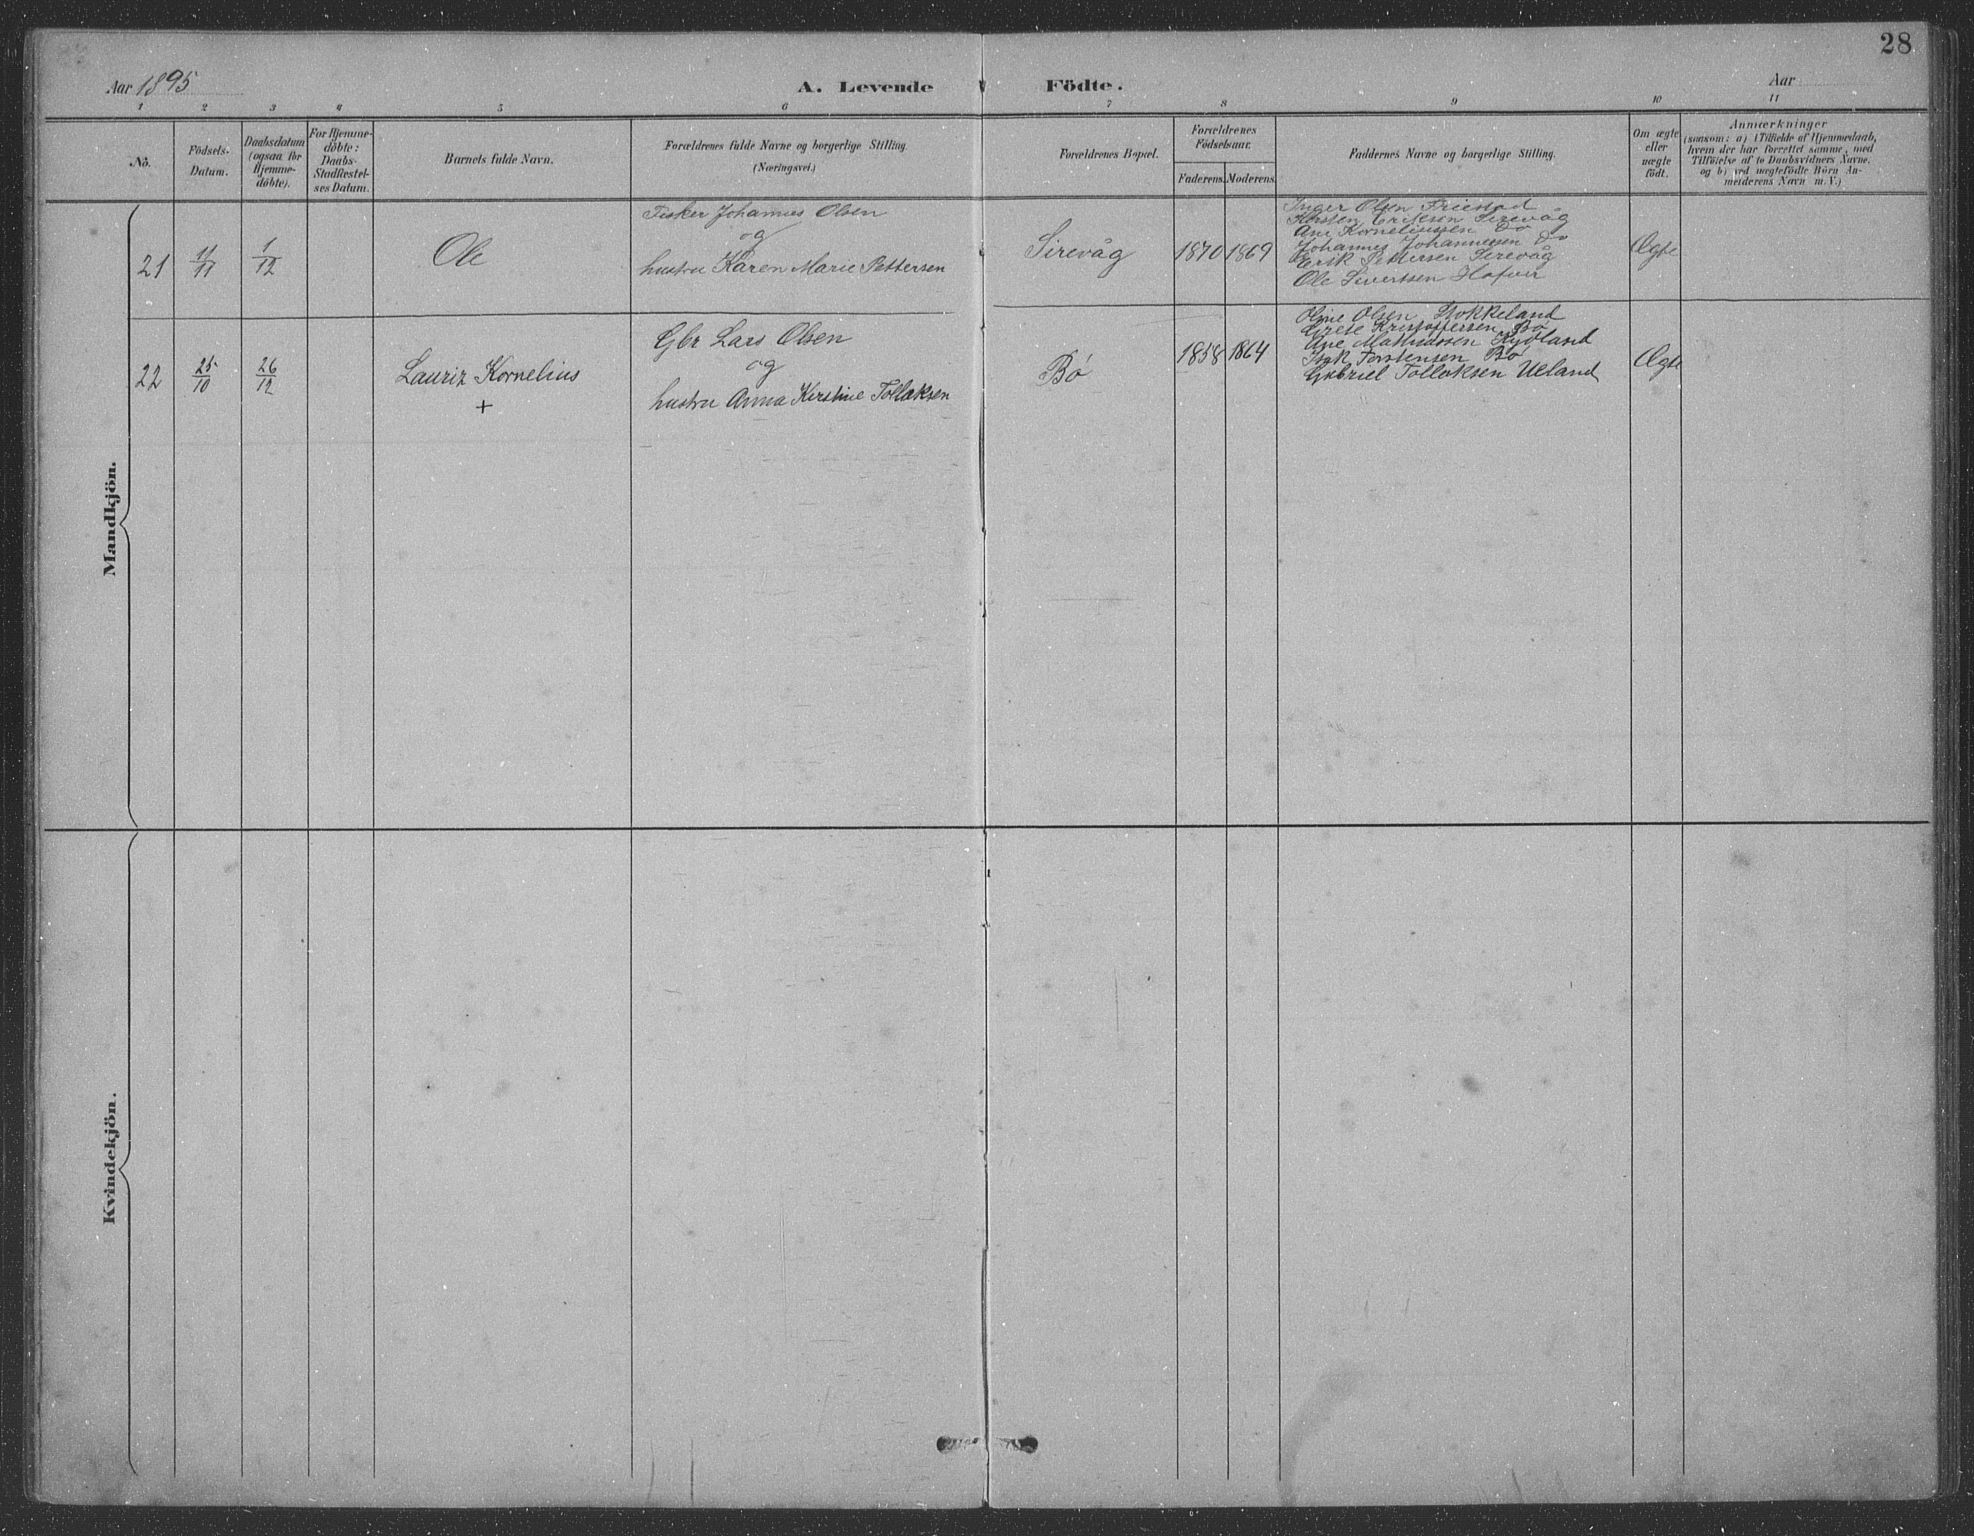 28
Aar 1895
A. Levende Födte.
Aar
1 2 3 4 5 6 7 8 9 10 11
No.
Födsels-
Datum.
Daabsdatum
(ogsaa for
Hjemme-
döbte).
For Hjemme-
döbte:
Daabs-
Stadfæstel-
ses Datum.
Barnets fulde Navn.
Forældrenes fulde Navne og borgerlige Stilling.
(Næringsvei.)
Forældrenes Bopæl.
Forældrenes
Födselsaar.
Faderens.
Moderens.
Faddernes Navne og borgerlige Stilling.
Om ægte
eller
uægte
födt.
Anmærkninger
(saasom: a) i Tilfælde af Hjemmedaab,
hvem der har forrettet samme, med
Tilföielse af to Daabsvidners Navne,
og b) ved uægtefödte Börn An-
melderens Navn m. V.)
Mandkjön.
21
11/11
1/12
Ole
Fisker Johannes Olsen
og
hustru Karen Marie Pettersen
Sirevåg
1870
1869
Inger Olsen Friestad
Kirsten Eriksen Sirevåg
Ane Korneliussen Do
Johannes Johannessen Do
Erik Pettersen Sirevåg
Ole Sivertsen
Ægte
22
25/10
26/12
Lauriz Kornelius
+
Gbr Lars Olsen
og
hustru Anna Kirstine Tollaksen
Bö
1858
1864
Oline Olsen Stokkeland
Grete Kristoffersen Bö
Ane Mathiassen
Isak Torstensen Bö
Gabriel Tollaksen Ueland
Ægte
Kvindekjön.